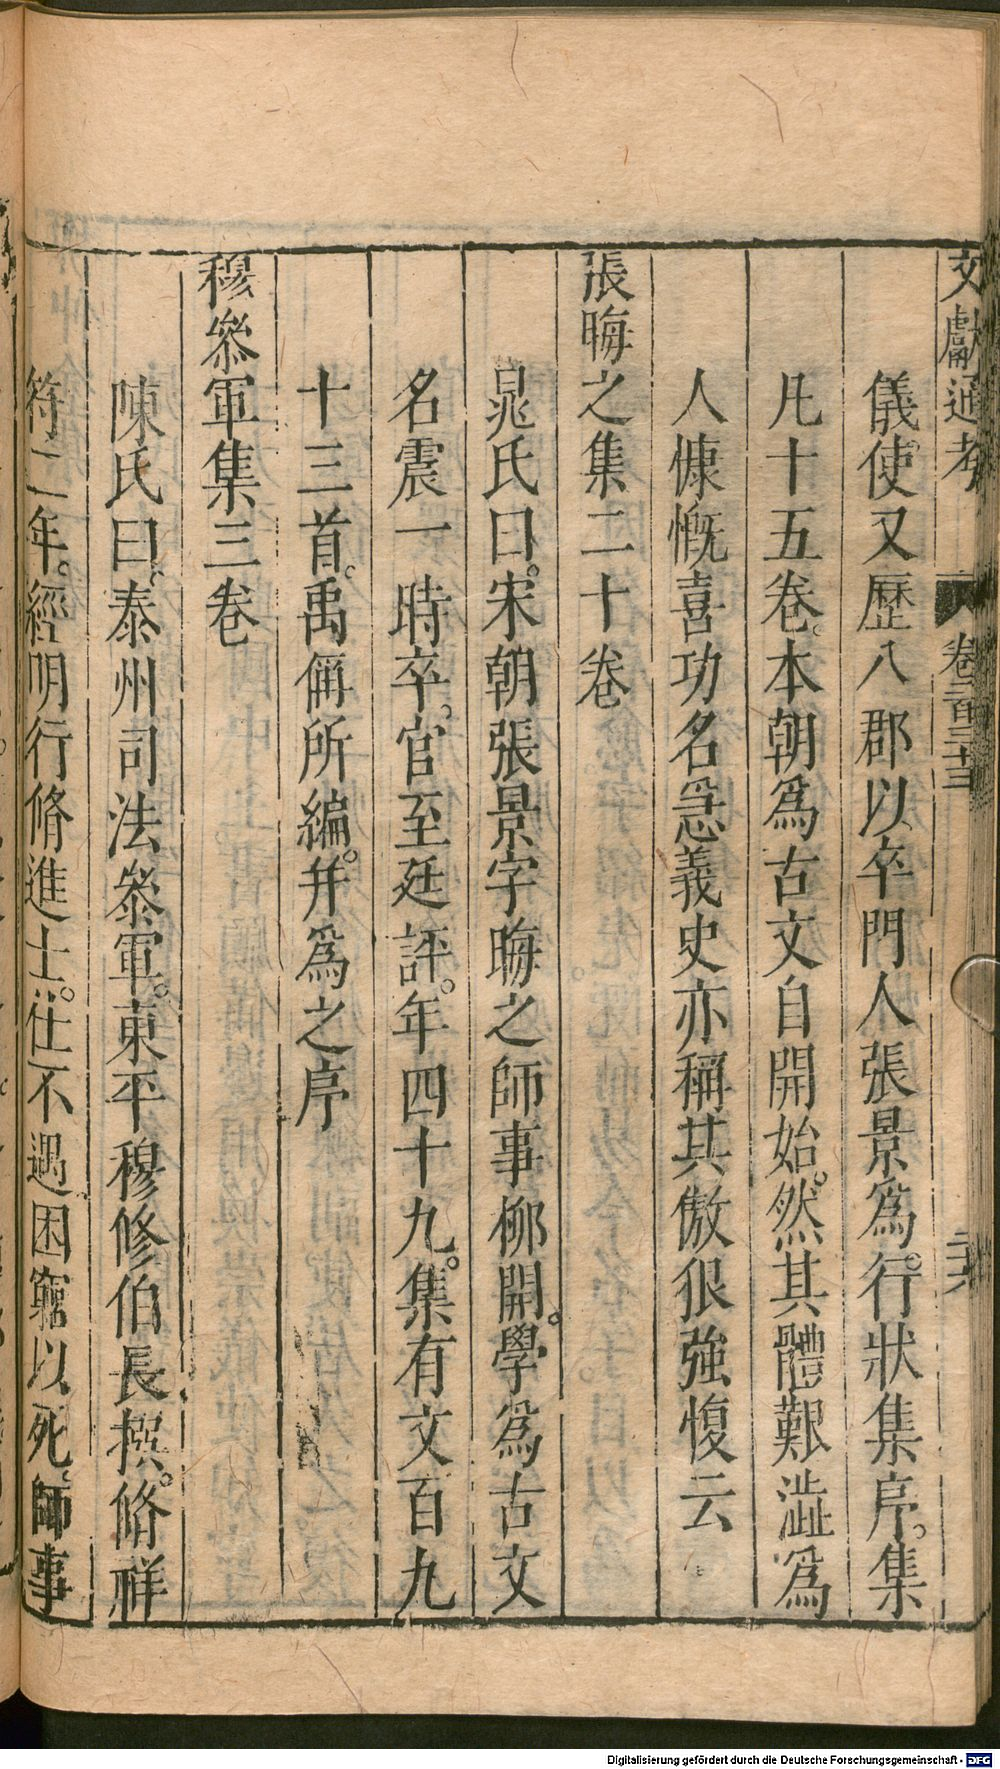 文獻通考 卷二百三十三 二六
儀使又歷八郡以卒門人張景爲行狀集序。集
凡十五卷。本朝爲古文自開始。然其體艱澁爲
人慷慨喜功名急義史亦稱其傲狠強愎云
張晦之集二十卷
晁氏曰。宋朝張景字晦之師事柳開。學爲古文
名震一時卒。官至廷評。年四十九。集有文百九
十三首。禹偁所編。并爲之序
穆叅軍集三卷
陳氏曰。泰州司法叅軍。東平穆修伯長撰。脩祥
符二年。經明行脩進士。仕不遇困窮以死。師事
Digitalisierung gefördert durch die Deutsche Forschungsgemeinschaft - DFG